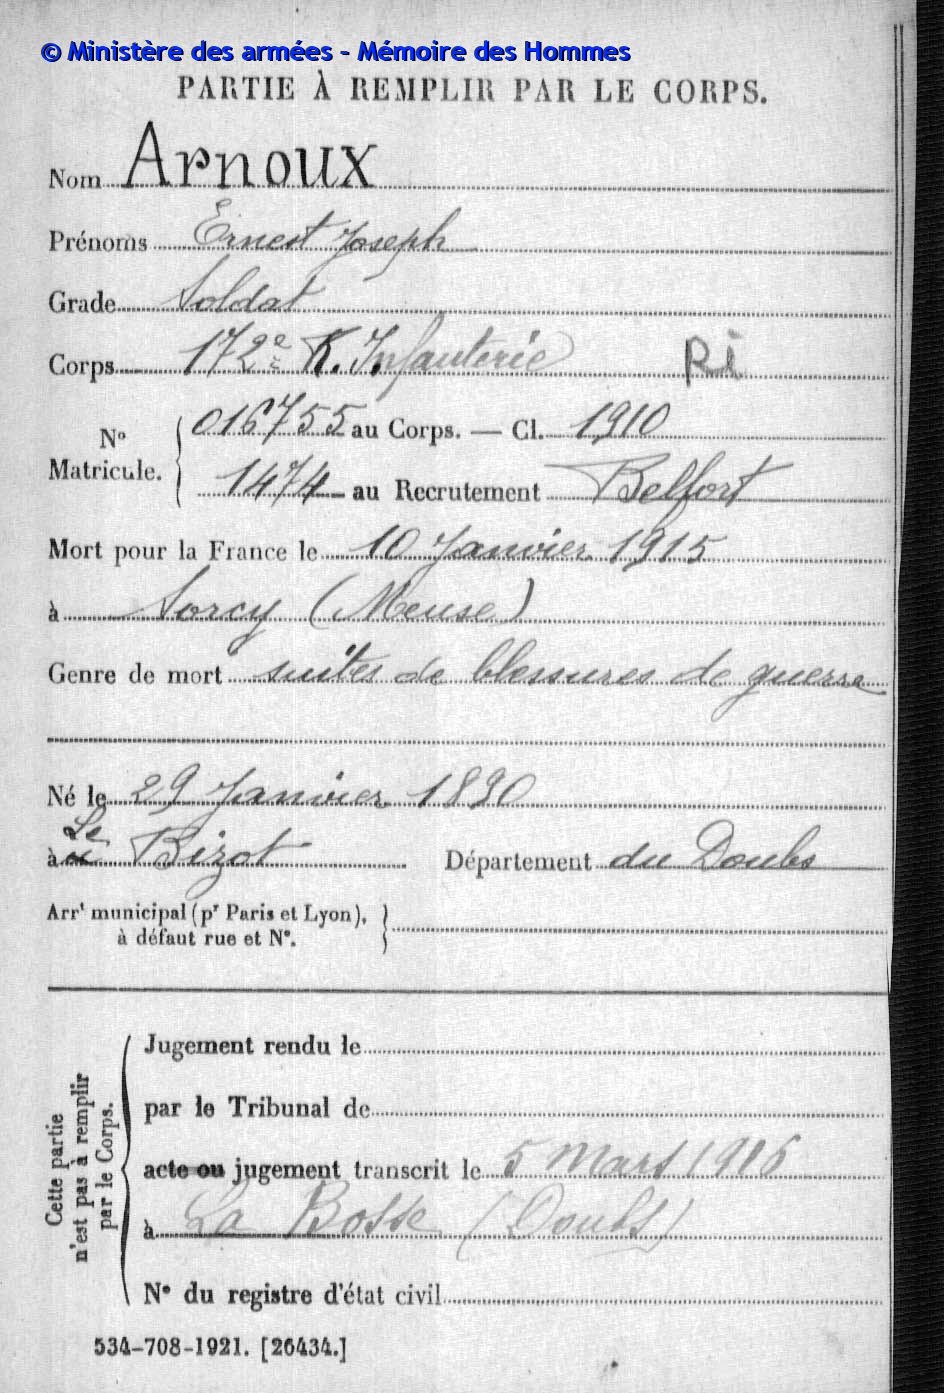 © Ministère des armées - Mémoire des Hommes
PARTIE À REMPLIR PAR LE CORPS.
Nom Arnoux
Prénoms Ernest Joseph
Grade Soldat
Corps 172e R. Infanterie Ri
N° Matricule. { 016755 au Corps. — Cl. 1910
1474 au Recrutement Belfort
Mort pour la France le 10 Janvier 1915
à Sorcy (Meuse)
Genre de mort suites de blessures de guerre
Né le 29 Janvier 1890
à Le Bizot Département du Doubs
Arrt municipal (pr Paris et Lyon), }
à défaut rue et N°.
Cette partie
n'est pas à remplir
par le Corps.
Jugement rendu le
par le Tribunal de
acte ou jugement transcrit le 5 Mars 1916
à La Bosse (Doubs)
N° du registre d'état civil
534-708-1921. [26434.]